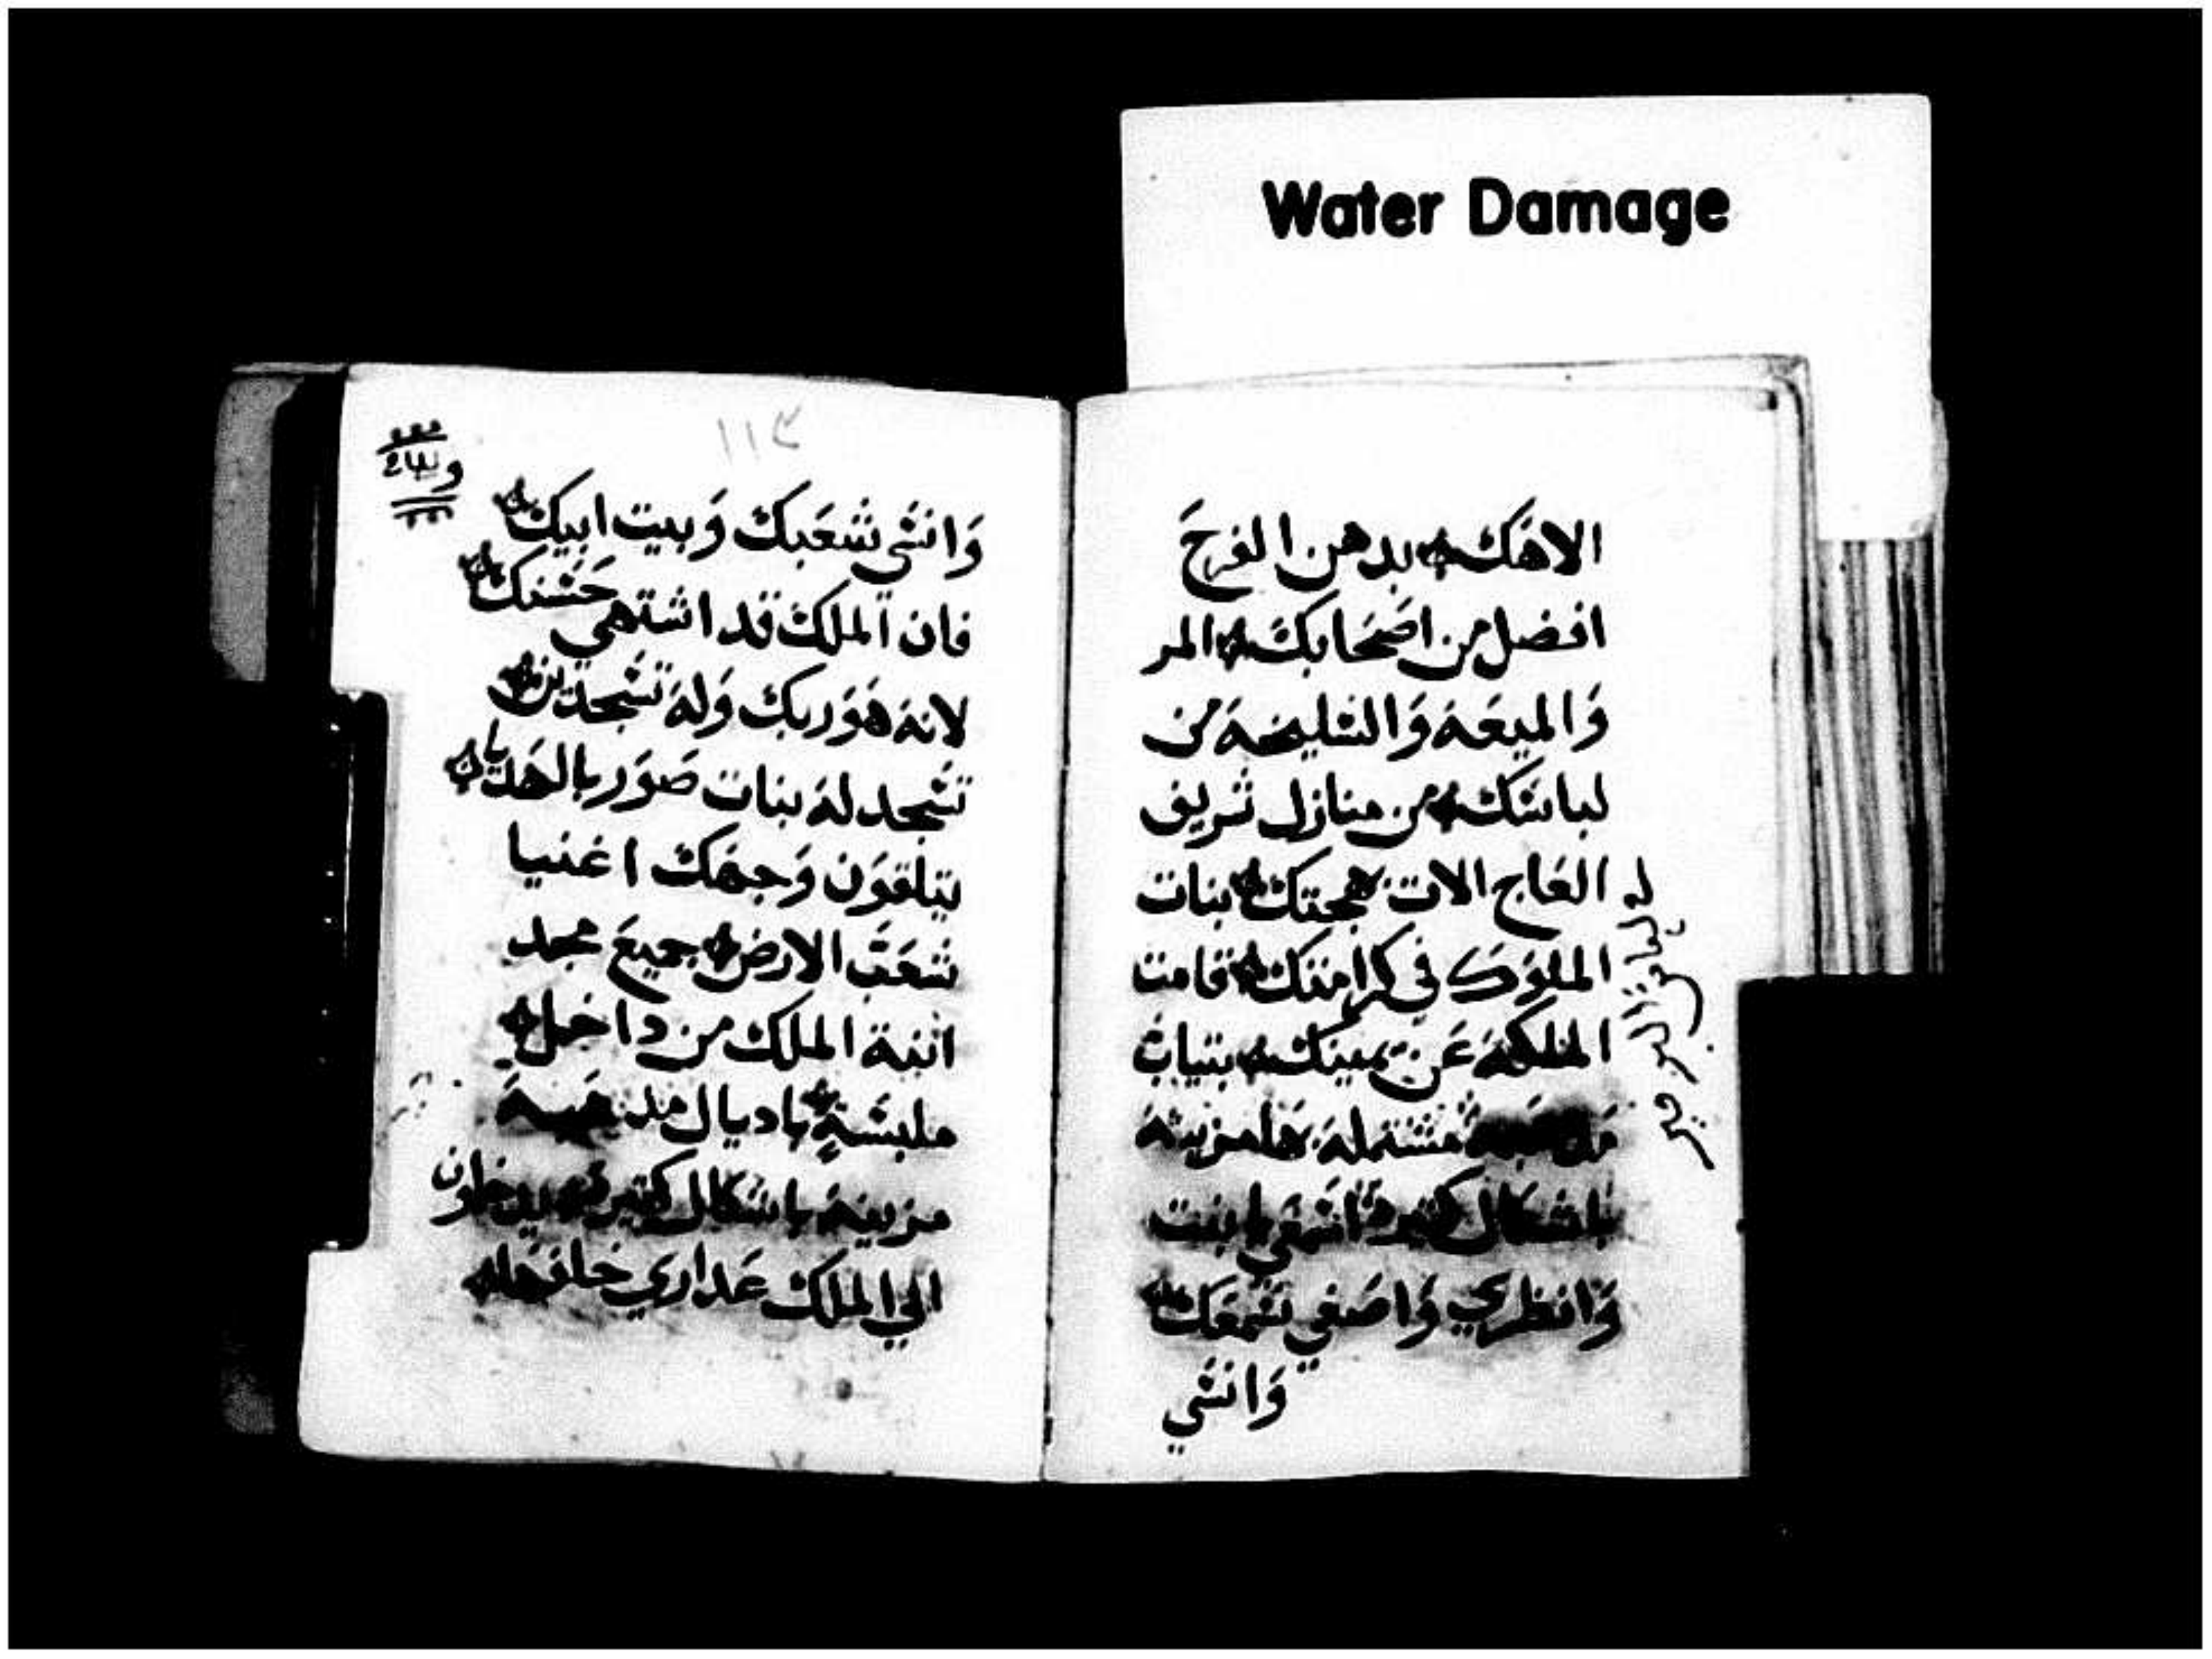 Water Damage
الاهك بدهن الفرح
افضل من اصحابك المر
والميعه والسليخه من
لباسك من منازل شريف
العاج الات بهجتك بنات
الملوك في كرامتك قامت
الملكه عن يمينك بثياب
مشتمله بها مزينه
باشكال كثيره اسمعي يا بنت
وانظري واصغي بسمعك
وانسي
١١٣
وانسي شعبك وبيت ابيك
فان الملك قد اشتهي حسنك
لانه هو ربك وله تسجدين
تسجد له بنات صور بالهدايا
يتلقون وجهك اغنيا
شعب الارض جميع مجد
ابنة الملك من داخل
ملبسة باديال مدهبه
مزينه باشكال كثيره يدخلون
الي الملك عداري خلفها